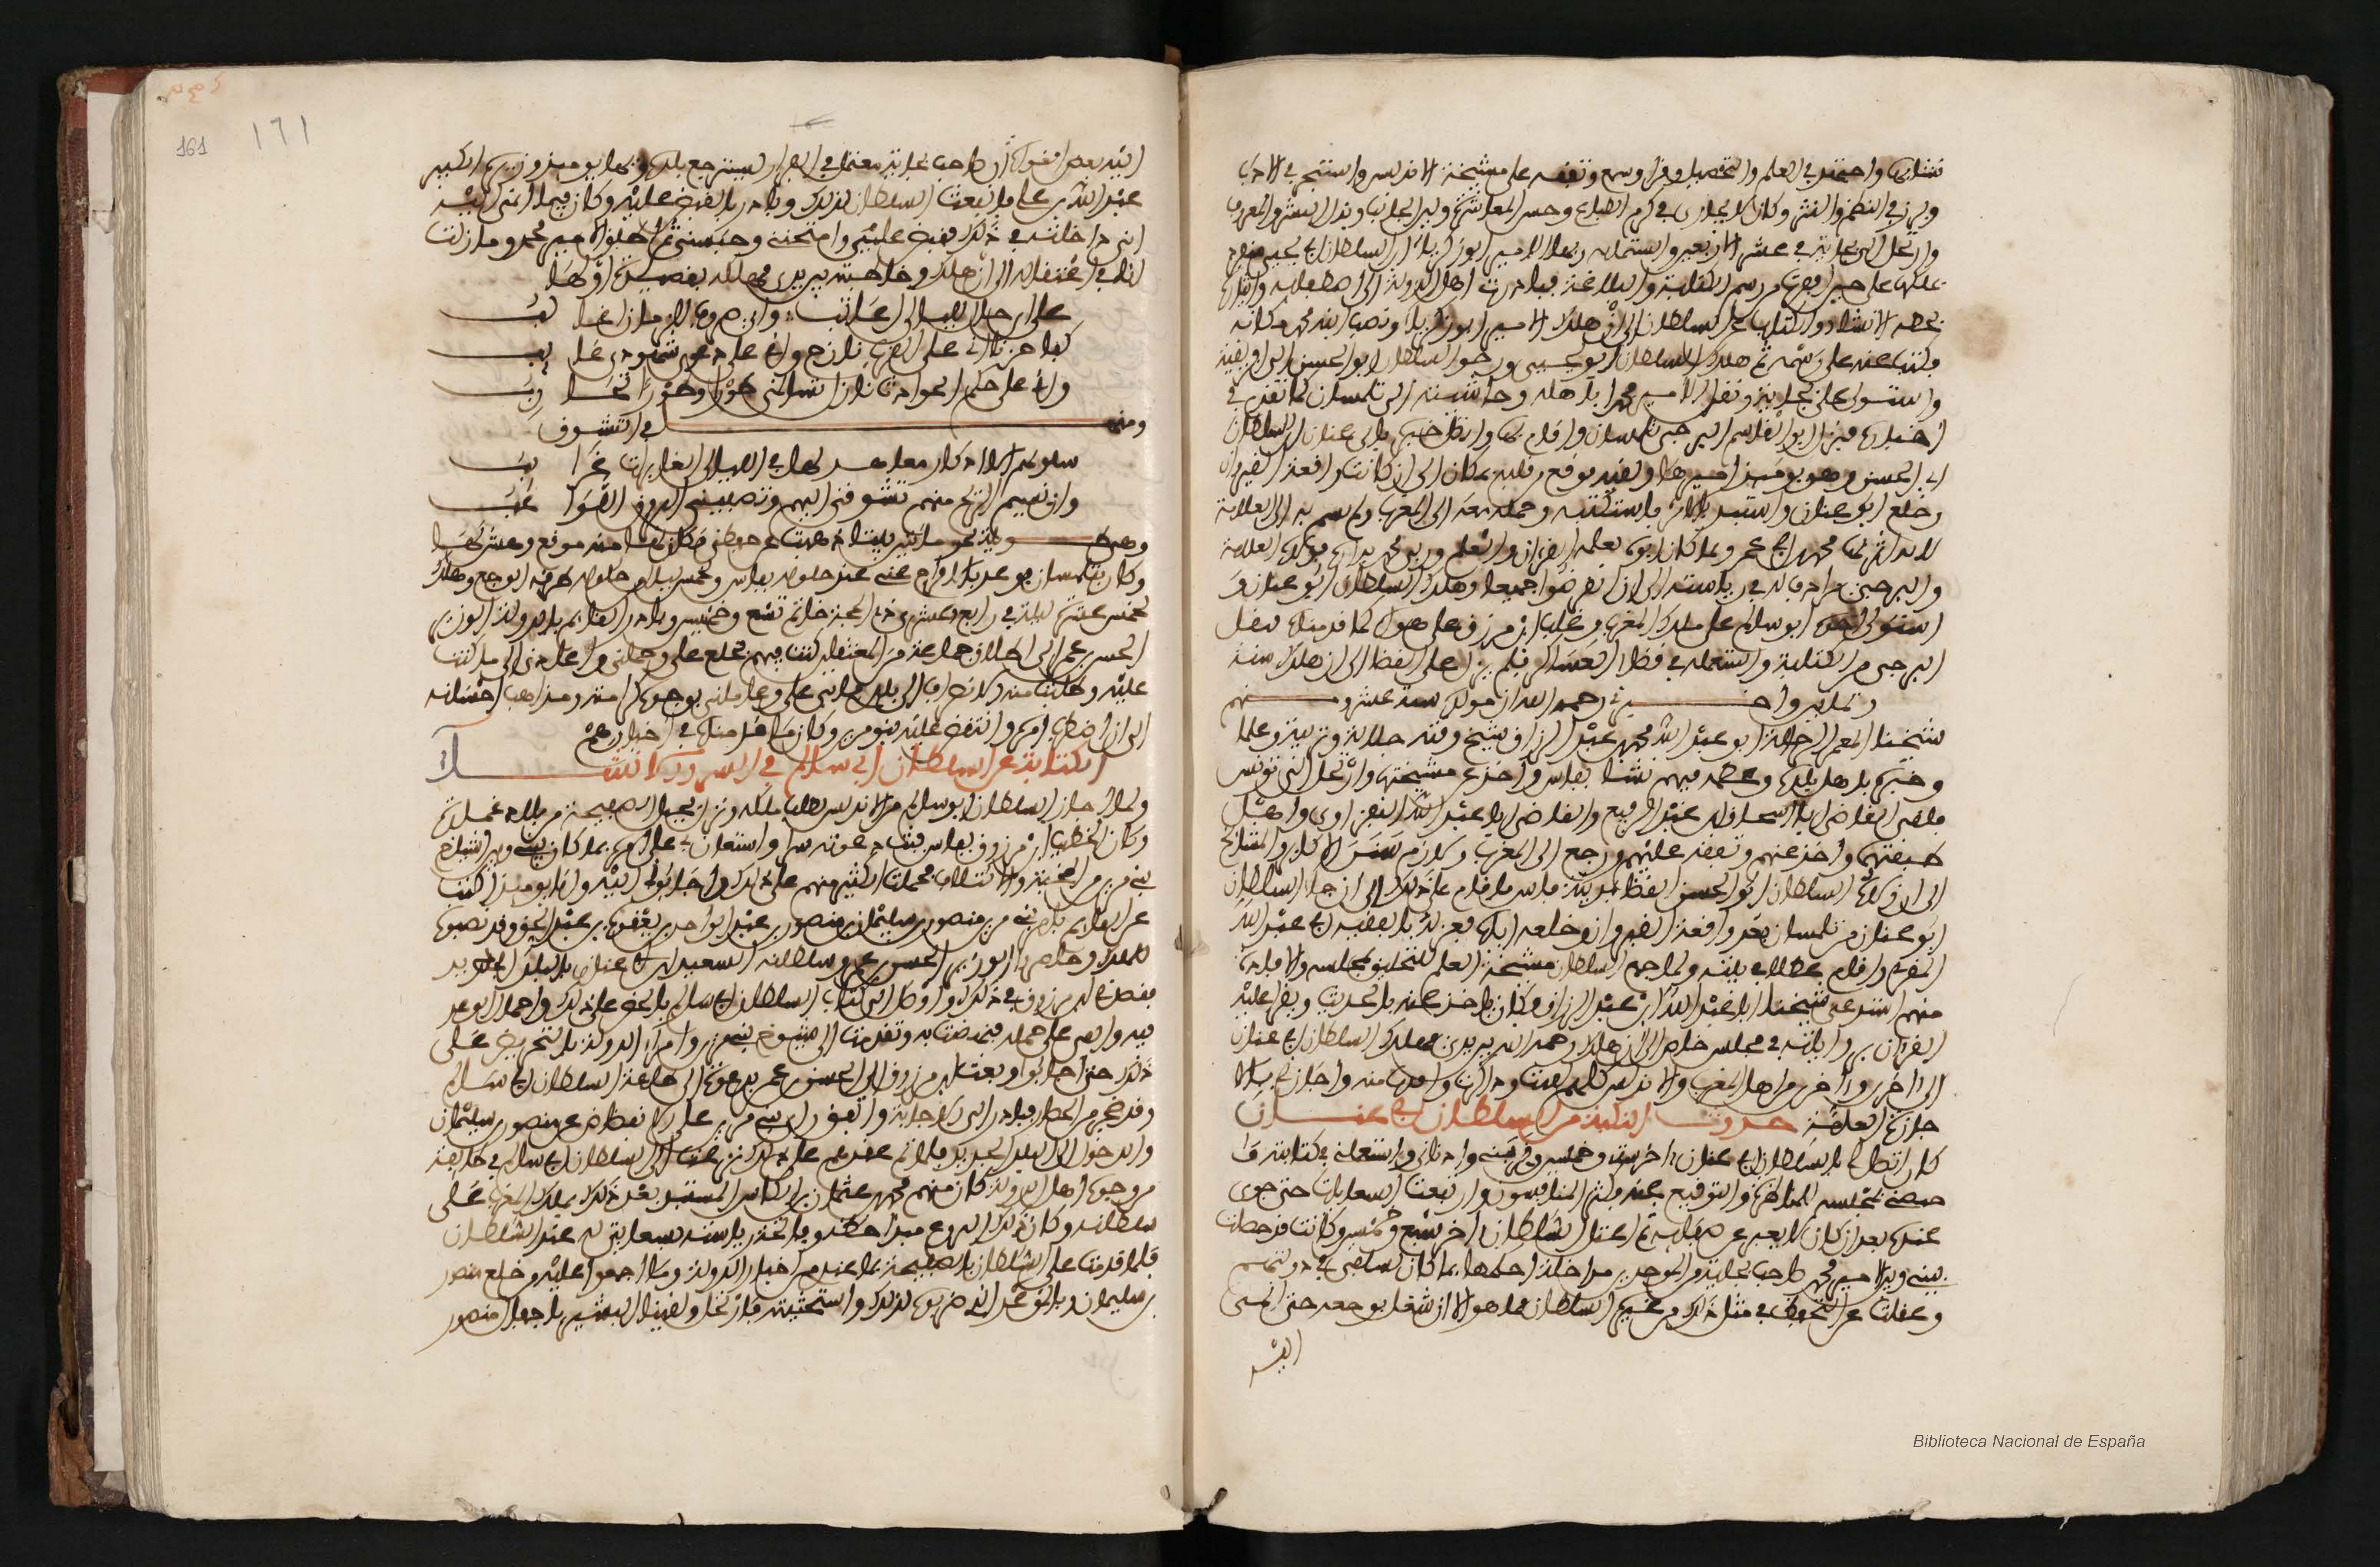 نشأ بها واجتهد في العلم والتحصيل وقرأ وسمع وتفقه على مشيخة الاندلس واستبحر في الادب
وبرز في النظم والنثر وكان لا يجارى في كرم الطباع وحسن المعاشرة ولين الجانب وبذل البشر والمعروف
وارتحل الى بجاية في عشر الاربعين والسبعماية وبها الامير ابو زكرياء ابن السلطان ابي يحيى منفردا
بملكها على حين اقفرت من رسم الكتابة والبلاغة فبادرت اهل الدولة الى اصطفائه وايثاره
بخطة الانشاء والكتاب عن السلطان الى ان هلك الامير ابو زكريا ونصب ابنه محمد مكانه
فكتب عنه على رسمه ثم هلك السلطان ابو يحيى وزحف السلطان ابو الحسن الى افريقية
واستولى على بجاية ونقل الامير محمدا باهله وحاشيته الى تلمسان كما تقدم في
اخباره فنزل ابو القاسم البرجي تلمسان واقام بها واتصل خبره بابي عنان ابن السلطان
ابي الحسن وهو يومئذ اميرها ولقيه فوقع من قلبه بمكان الى ان كانت واقعة القيروان
وخلع ابو عنان واستبد بالامر فاستكتبه وحمله معه الى المغرب ولم يسم به الى العلامة
لانه اثر بها محمد ابن ابي عمر وبما كان ابوه يعلمه القرءان والعلم وربي محمد بداره فولاه العلامة
والبرجي مرادف له في رياسته الى ان انقرضوا جميعا وهلك السلطان ابو عنان و
استولى اخوه ابو سالم على ملك المغرب وغلب ابن مرزوق على هواه كما قدمناه فنقل
البرجي من الكتابة واستعمله في قضاء العساكر فلم يزل على القضا الى ان هلك سنة
وثمانين واخبرني رحمه الله ان مولده سنة عشر ومنهم
شيخنا المعمر الرحالة ابو عبد الله محمد بن عبد الرزاق شيخ وقته جلالة وتربية وعلما
وخبرة باهل بلده وعظمة فيهم نشا بفاس واخذ عن مشيختها وارتحل الى تونس
فلقي القاضي ابا اسحاق بن عبد الرفيع والقاضي ابا عبد الله النفزاوي واهل
طبقتهما واخذ عنهم وتفقه عليهم ورجع الى المغرب ولازم سنن الاكابر والمشائخ
الى ان ولاه السلطان ابو الحسن القضا بمدينة فاس فاقام على ذلك الى ان جا السلطان
ابو عنان من تلمسان بعد واقعة القيروان وخلعه اباه فعزله بالفقيه ابي عبد الله
المقري واقام عطلا في بيته ولما جمع السلطان مشيخة العلم للتحليق بمجلسه والافادة
منهم استدعى شيخنا ابا عبد الله بن عبد الرزاق فكان ياخذ عنه بالحديث ويقرا عليه
القرءان برواياته في مجلس خاص الى ان هلك رحمه الله بين يدي مهلك السلطان ابي عنان
الى ءاخرين وءاخرين من اهل المغرب والاندلس كلهم لقيت وذاكرت وافدت منه واجازني بالاا
جازة العامة حدوث النكبة من السلطان ابي عنان
كان اتصالي بالسلطان ابي عنان ءاخر ست وخمسين وقربني وادناني واستعملني في كتابته وا
ختصني بمجلسه للمناظرة والتوقيع عنه فكثر المنافسون وارتفعت السعايات حتى قوي
عندي بعد ان كان لا يعبر عن صفايه ثم اعتل السلطان ءاخر سبع وخمسين وكانت قد حصلت
بيني وبين الامير محمد صاحب بجاية من الموحدين مداخلة احكمها ما كان لسلفي في دولتهم
وغفلت عن التحفظ في مثل ذلك من غيرة السلطان فما هو الا ان شغل بوجعه حتى انهى
اليه
١٦١
161
اليه بعض الغواة ان صاحب بجاية معتمل في الفرار ليسترجع بلده وبها يومئذ وزيره الكبير
عبد الله بن علي فانبعث السلطان لذلك وبادر بالقبض عليه وكان فيما انهى اليه
اني داخلته في ذلك فقبض علي وامتحنني وحبسني ثم اطلق الامير محمد وما زلت
انا في اعتقاله الى ان هلك وخاطبته بين يدي مهلكه بقصيدة اولها
على اي حال لليالي اعاتب واي صروف للزمان اغالب
كفى حزنا اني على القرب نازح واني على دعوى شهودي غايب
واني على حكم الحوادث نازل تسالمني طورا وطورا تحارب
ومنها في التشوق
سلوتهم الا ادكار معاهد لها في الليالي الغابرات غرايب
وان نسيم الريح منهم تشوقني اليهم وتصبيني البروق اللواعب
وهي طويلة نحو مايتي بيتا ذهبت عن حفظي فكان لها منه موقع وهش لها
وكان بتلمسان فوعد بالافراج عني عند حلوله بفاس ولخمس ليال من حلوله طرقه الوجع وهلك
لخمس عشرة ليلة في رابع وعشرين ذي الحجة خاتم تسع وخمسين وبادر القايم بالدولة الوزير
الحسن بن عمر الى اطلاق جماعة من المعتقلين كنت فيهم فخلع علي وحملني واعادني الى ما كنت
عليه وطلبت منه الانصراف الى بلدي فابى علي وعاملني بوجوه كرامته ومذاهب احسانه
الى ان اضطرب امره وانتقض عليه بنو مرين وكان ما قدمناه في اخبارهم
الكتابة عن السلطان ابي سالم في السر والانشاء
ولما اجاز السلطان ابو سالم من الاندلس لطلب ملكه ونزل بجبل الصفيحة من بلاد غمارة
وكان الخطيب ابن مرزوق بفاس فبث دعوته سرا واستعان بي على امره بما كان بيني وبين اشياخ
بني مرين من المحبة والائتلاف فحملت الكثير منهم على ذلك واجابوني اليه وانا يومئذ اكتب
عن القايم بامر بني مرين منصور بن سليمان بن منصور بن عبد الواحد بن يعقوب بن عبد الحق وقد نصبوه
للملك وحاصروا الوزير الحسن بن عمر وسلطانه السعيد ابن ابي عنان بالبلد الجديد
فقصدني ابن مرزوق في ذلك واوصل الي كتاب السلطان ابي سالم بالحض على ذلك واجمال الوعد
فيه والقى علي حمله فنهضت به وتقدمت الى شيوخ بني مرين وامراء الدولة بالتحريض على
ذلك حتى اجابوا وبعث ابن مرزوق الى الحسن بن عمر يدعوه الى طاعة السلطان ابي سالم
وقد ضجر من الحصار فبادر الى الاجابة واتفق راي بني مرين على الانفضاض عن منصور بن سليمان
والدخول الى البلد الجديد فلما تم عقدهم على ذلك نزعت الى السلطان ابي سالم في طايفة
من وجوه اهل الدولة كان منهم محمد بن عثمان بن الكاس المستبد بعد ذلك بملك المغرب على
سلطانه وكان ذلك النزوع مبدا حظه وفاتحة رياسته بسعايتي له عند السلطان
فلما قدمت على السلطان بالصفيحة بما عندي من اخبار الدولة وما اجمعوا عليه من خلع منصور
بن سليمان وبالموعد الذي ضربوه لذلك واستحثثته فارتحل ولقينا البشير باجفال منصور
Biblioteca Nacional de España